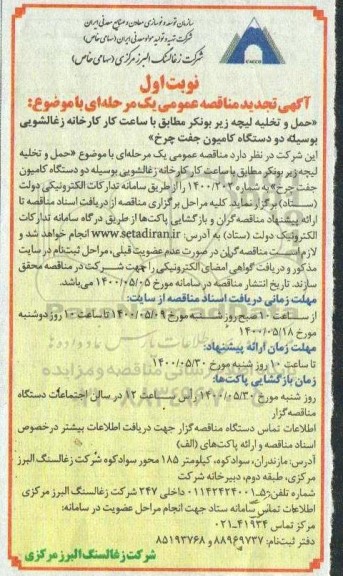 سازمان توسعه و نوسازی معادن و صنایع معدنی ایران
شرکت تهیه و تولید مواد معدنی ایران (سهامی خاص)
شرکت زغالسنگ البرز مرکزی (سهامی خاص)
نوبت اول
آگهی تجدید مناقصه عمومی یک مرحله‌ای با موضوع:
«حمل و تخلیه لیچه زیر بونکر مطابق با ساعت کار کارخانه زغالشویی
بوسیله دو دستگاه کامیون جفت چرخ»
این شرکت در نظر دارد مناقصه عمومی یک مرحله‌ای با موضوع «حمل و تخلیه
لیچه زیر بونکر مطابق با ساعت کار کارخانه زغالشویی بوسیله دو دستگاه کامیون
جفت چرخ» به شماره ۱۴۰۰/۲۰۳ را از طریق سامانه تدارکات الکترونیکی دولت
(ستاد) برگزار نماید. کلیه مراحل برگزاری مناقصه از دریافت اسناد مناقصه تا
ارائه پیشنهاد مناقصه گران و بازگشایی پاکت‌ها از طریق درگاه سامانه تدارکات
الکترونیک دولت (ستاد) به آدرس: www.setadiran.ir انجام خواهد شد و
لازم است مناقصه گران در صورت عدم عضویت قبلی، مراحل ثبت نام در سایت
مذکور و دریافت گواهی امضای الکترونیکی را جهت شرکت در مناقصه محقق
سازند. تاریخ انتشار مناقصه در سامانه مورخ ۱۴۰۰/۰۵/۰۵ می‌باشد.
مهلت زمانی دریافت اسناد مناقصه از سایت:
از ساعت ۱۰ صبح روز شنبه مورخ ۱۴۰۰/۰۵/۰۹ تا ساعت ۱۰ روز دوشنبه
مورخ ۱۴۰۰/۰۵/۱۸
مهلت زمان ارائه پیشنهاد:
تا ساعت ۱۰ روز شنبه مورخ ۱۴۰۰/۰۵/۳۰
زمان بازگشایی پاکت‌ها:
روز شنبه مورخ ۱۴۰۰/۰۵/۳۰ راس ساعت ۱۲ در سالن اجتماعات دستگاه
مناقصه گزار
اطلاعات تماس دستگاه مناقصه گزار جهت دریافت اطلاعات بیشتر در خصوص
اسناد مناقصه و ارائه پاکت‌های (الف)
آدرس: مازندران، سوادکوه، کیلومتر ۱۸۵ محور سوادکوه شرکت زغالسنگ البرز
مرکزی، طبقه دوم، دبیرخانه شرکت
شماره تلفن: ۵-۰۱۱۴۲۴۲۴۰۰۱ داخلی ۲۴۷ شرکت زغالسنگ البرز مرکزی
اطلاعات تماس سامانه ستاد جهت انجام مراحل عضویت در سامانه:
مرکز تماس ۴۱۹۳۴-۰۲۱
دفتر ثبت‌نام: ۸۸۹۶۹۷۳۷ و ۸۵۱۹۳۷۶۸
شرکت زغالسنگ البرز مرکزی